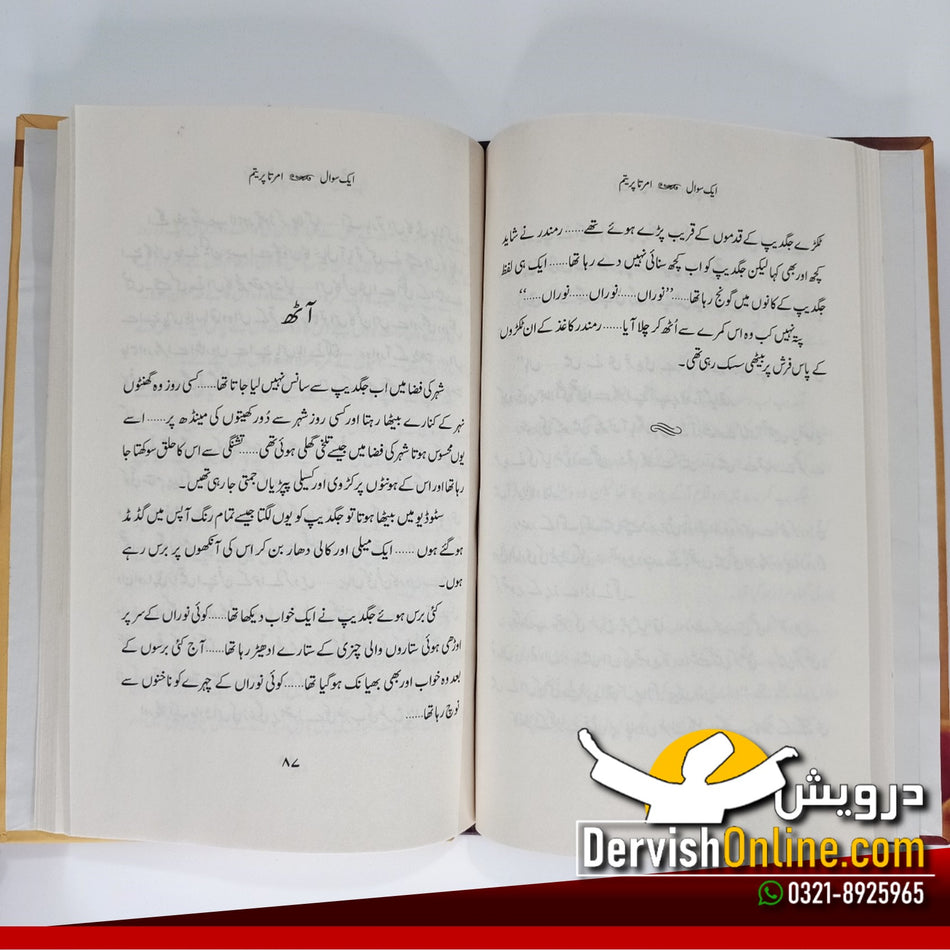 ایک سوال امرتا پریتم
ٹکڑے جگدیپ کے قدموں کے قریب پڑے ہوئے تھے...... رمندر نے شاید
کچھ اور بھی کہا لیکن جگدیپ کو اب کچھ سنائی نہیں دے رہا تھا...... ایک ہی لفظ
جگدیپ کے کانوں میں گونج رہا تھا......”نوراں......نوراں......نوراں......“
پتہ نہیں کب وہ اس کمرے سے اُٹھ کر چلا آیا...... رمندر کاغذ کے ان ٹکڑوں
کے پاس فرش پر بیٹھی سسک رہی تھی۔
ایک سوال امرتا پریتم
آٹھ
شہر کی فضا میں اب جگدیپ سے سانس نہیں لیا جاتا تھا......کسی روز وہ گھنٹوں
نہر کے کنارے بیٹھا رہتا اور کسی روز شہر سے دُور کھیتوں کی مینڈھ پر...... اسے
یوں محسوس ہوتا شہر کی فضا میں جیسے تلخی گھلی ہوئی تھی......تشنگی سے اس کا حلق سوکھتا جا
رہا تھا اور اس کے ہونٹوں پر کڑوی اور کسیلی پپڑیاں جمتی جا رہی تھیں۔
سٹوڈیو میں بیٹھا ہوتا تو جگدیپ کو یوں لگتا جیسے تمام رنگ آپس میں گڈ مڈ
ہو گئے ہوں ...... ایک میلی اور کالی دھار بن کر اس کی آنکھوں پر برس رہے
ہوں۔
کئی برس ہوئے جگدیپ نے ایک خواب دیکھا تھا......کوئی نوراں کے سر پر
اوڑھی ہوئی ستاروں والی چنری کے ستارے ادھیڑ رہا تھا......آج کئی برسوں کے
بعد وہ خواب اور بھی بھیانک ہو گیا تھا......کوئی نوراں کے چہرے کو ناخنوں سے
نوچ رہا تھا......
۸۷
درویش
DervishOnline.com
0321-8925965